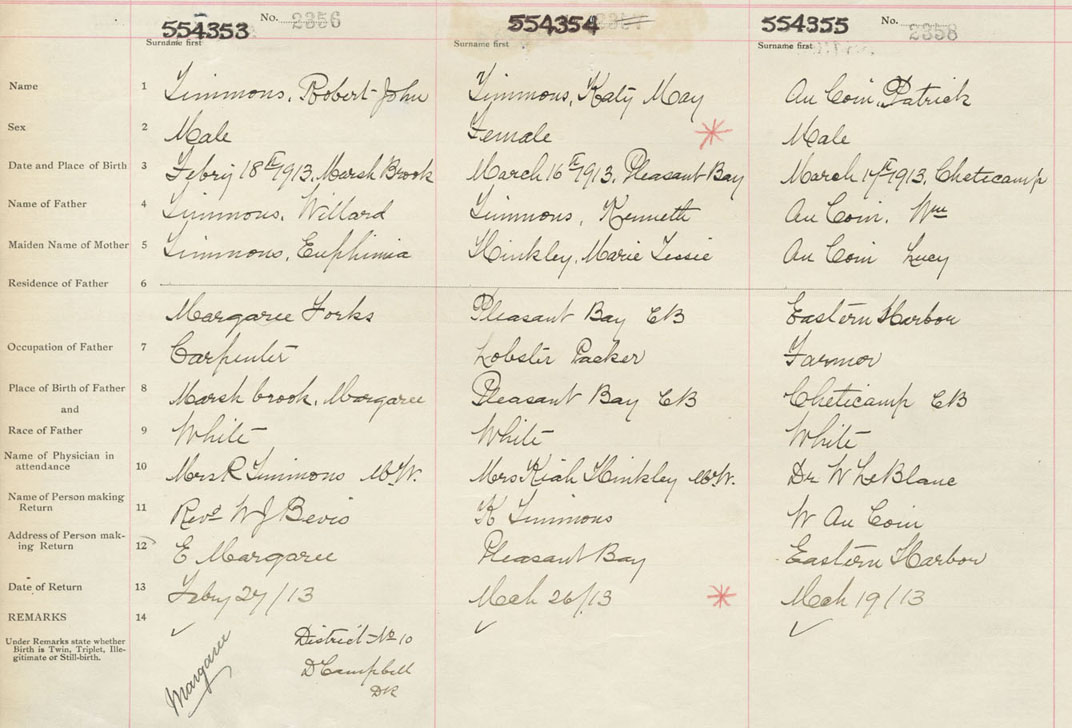 554353 No. 2356 554354 2357 554355 No. 2358
Surname first Surname first Surname first
Name 1 Timmons, Robert John Timmons, Katy May Au Coin, Patrick
Sex 2 Male Female Male
Date and Place of Birth 3 Febry 18th 1913, Marsh Brook March 16th 1913, Pleasant Bay March 17th 1913, Cheticamp
Name of Father 4 Timmons, Willard Timmons, Kenneth Au Coin, Wm
Maiden Name of Mother 5 Timmons, Euphimia Hinkley, Marie Tessie Au Coin Lucy
Residence of Father 6
Margaree Forks Pleasant Bay CB Eastern Harbor
Occupation of Father 7 Carpenter Lobster Packer Farmor
Place of Birth of Father 8 Marsh brook, Margaree Pleasant Bay CB Cheticamp CB
and
Race of Father 9 White White White
Name of Physician in
attendance 10 Mrs R Timmons M.W. Mrs Kiah Hinkley M.W. Dr W LeBlanc
Name of Person making
Return 11 Revd W J Bevis K Timmons W Au Coin
Address of Person mak-
ing Return 12 E Margaree Pleasant Bay Eastern Harbor
Date of Return 13 Feby 27/13 Mach 26/13 Mach 19/13
REMARKS 14
Under Remarks state whether
Birth is Twin, Triplet, Ille-
gitimate or Still-birth.
Margaree
District No 10
D Campbell
DR